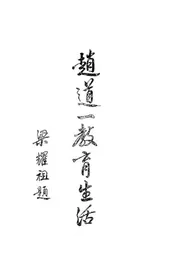 趙道一教育生活
梁耀祖題